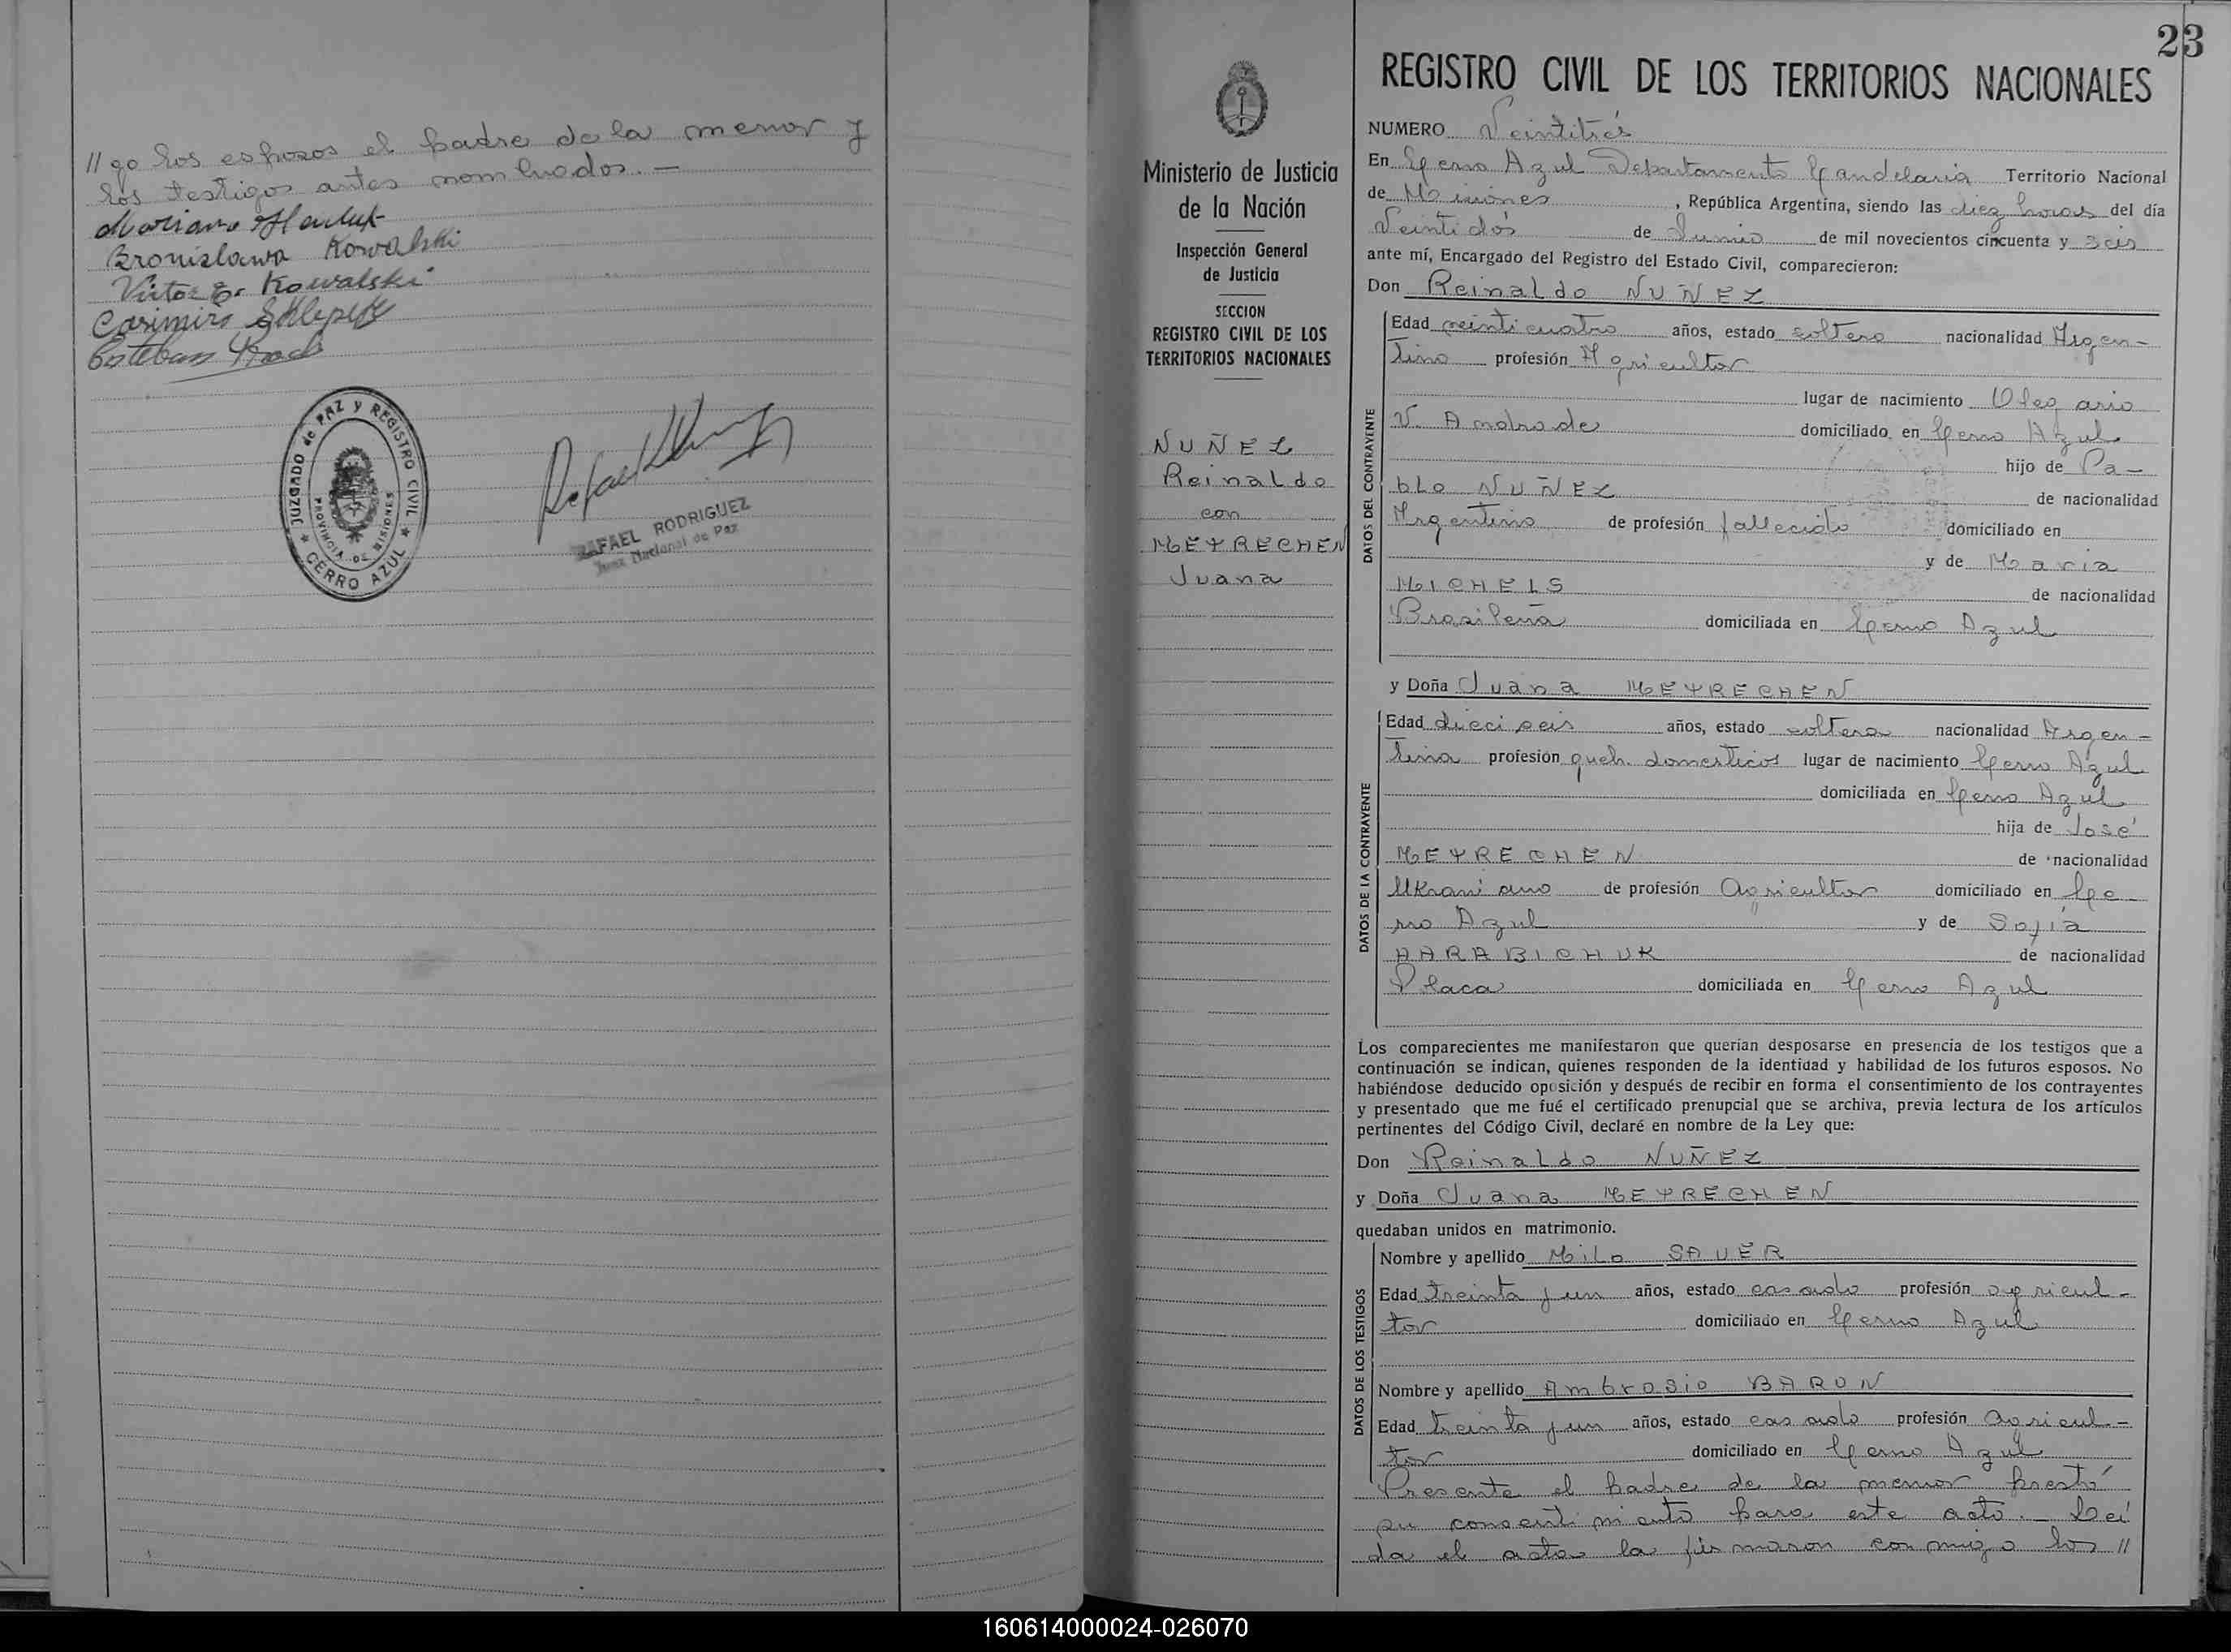 // go los esposos el padre de la menor y
los testigos antes nombrados. —
Mariano
Bronislawa Kowalski
Victor E. Kowalski
Casimiro
Esteban
JUZGADO de PAZ y REGISTRO CIVIL
PROVINCIA DE MISIONES
★ CERRO AZUL ★
RAFAEL RODRIGUEZ
Juez Nacional de Paz
23
Ministerio de Justicia
de la Nación
Inspección General
de Justicia
SECCION
REGISTRO CIVIL DE LOS
TERRITORIOS NACIONALES
NUÑEZ
Reinaldo
con
MEYRECHEN
Juana
REGISTRO CIVIL DE LOS TERRITORIOS NACIONALES
NUMERO Veintitrés
En Cerro Azul Departamento Candelaria Territorio Nacional
de Misiones, República Argentina, siendo las diez horas del día
Veintidós de Junio de mil novecientos cincuenta y seis
ante mí, Encargado del Registro del Estado Civil, comparecieron:
Don Reinaldo NUÑEZ
DATOS DEL CONTRAYENTE
Edad veinticuatro años, estado soltero nacionalidad Argen-
tino profesión Agricultor
lugar de nacimiento Olegario
V. Andrade domiciliado en Cerro Azul
hijo de Pa-
blo NUÑEZ de nacionalidad
Argentino de profesión fallecido domiciliado en
y de Maria
MICHELS de nacionalidad
Brasileña domiciliada en Cerro Azul
y Doña Juana MEYRECHEN
DATOS DE LA CONTRAYENTE
Edad dieciseis años, estado soltera nacionalidad Argen-
tina profesión queh. domesticos lugar de nacimiento Cerro Azul
domiciliada en Cerro Azul
hija de José
MEYRECHEN de nacionalidad
Ukraniano de profesión Agricultor domiciliado en Ce-
rro Azul y de Sofía
HARABICHUK de nacionalidad
Polaca domiciliada en Cerro Azul
Los comparecientes me manifestaron que querían desposarse en presencia de los testigos que a
continuación se indican, quienes responden de la identidad y habilidad de los futuros esposos. No
habiéndose deducido oposición y después de recibir en forma el consentimiento de los contrayentes
y presentado que me fué el certificado prenupcial que se archiva, previa lectura de los artículos
pertinentes del Código Civil, declaré en nombre de la Ley que:
Don Reinaldo NUÑEZ
y Doña Juana MEYRECHEN
quedaban unidos en matrimonio.
DATOS DE LOS TESTIGOS
Nombre y apellido Milo SAUER
Edad treinta y un años, estado casado profesión agricul-
tor domiciliado en Cerro Azul
Nombre y apellido Ambrosio BARON
Edad treinta y un años, estado casado profesión agricul-
tor domiciliado en Cerro Azul
Presente el padre de la menor prestó
su consentimiento para este acto.— Leí
da el acta la firmaron conmigo los //
160614000024-026070